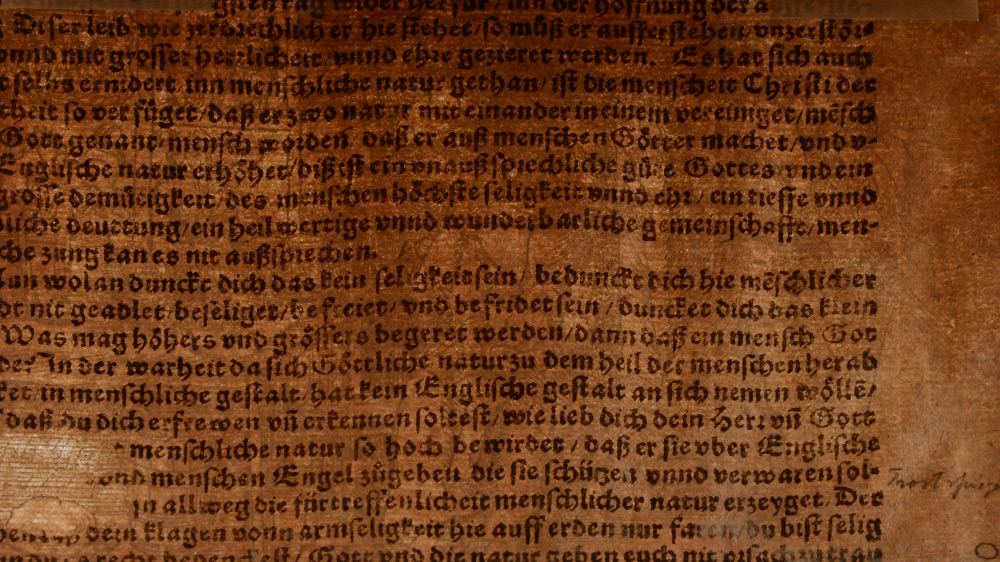 tag wider herfür/ inn der hoffnung der a
Diser leib wie zerbrechlich er hie stehet/ so müß er aufferstehen/ vnzerstör⸗
vnnd mit grosser herrlicheit/ vnnd ehre gezieret werden. Es hat sich auch
selbs ernidert/ inn menschliche natur gethan/ ist die menscheit Christi der
theit so verfüget/ daß er zwo natur mit einander in einem vereiniget/ mēsch
Gott genant/ mensch worden/ daß er auß menschen Götter machet/ vnd v⸗
Englische natur erhöhet/ diß ist ein vnaußsprechliche güte Gottes vnd ein
grosse demütigkeit/ des menschen höchste seligkeit vnnd ehr/ ein tieffe vnnd
liche deuttung/ ein heilwertige vnnd wunderbarliche gemeinschafft/ men⸗
che zung kan es nit außsprechen.
un wolan dunckt dich das kein seligkeit sein/ beduncket dich hie mēschlicher
nit geadlet/ beseliget/ befreiet/ vnd befridet sein/ duncket dich das klein
Was mag höhers vnd grössers begeret werden/ dann daß ein mensch Got
de? In der warheit da sich Göttliche natur zu dem heil der menschen herab
ket/ in menschliche gestalt/ hat kein Englische gestalt an sich nemen wöllē/
daß du dich erfrewen vñ erkennen soltest/ wie lieb dich dein Herr vñ Gott
menschliche natur so hoch bewirdet/ daß er sie vber Englische
vnd menschen Engel zůgeben die sie schützen vnnd verwaren sol⸗
in allweg die fürtreffenlicheit menschlicher natur erzeyget. Der
dein klagen vonn armseligkeit hie auff erden nur faren/ du bist selig
recht bedenckest/ Gott vnd die natur geben euch nit vrsach zu trau